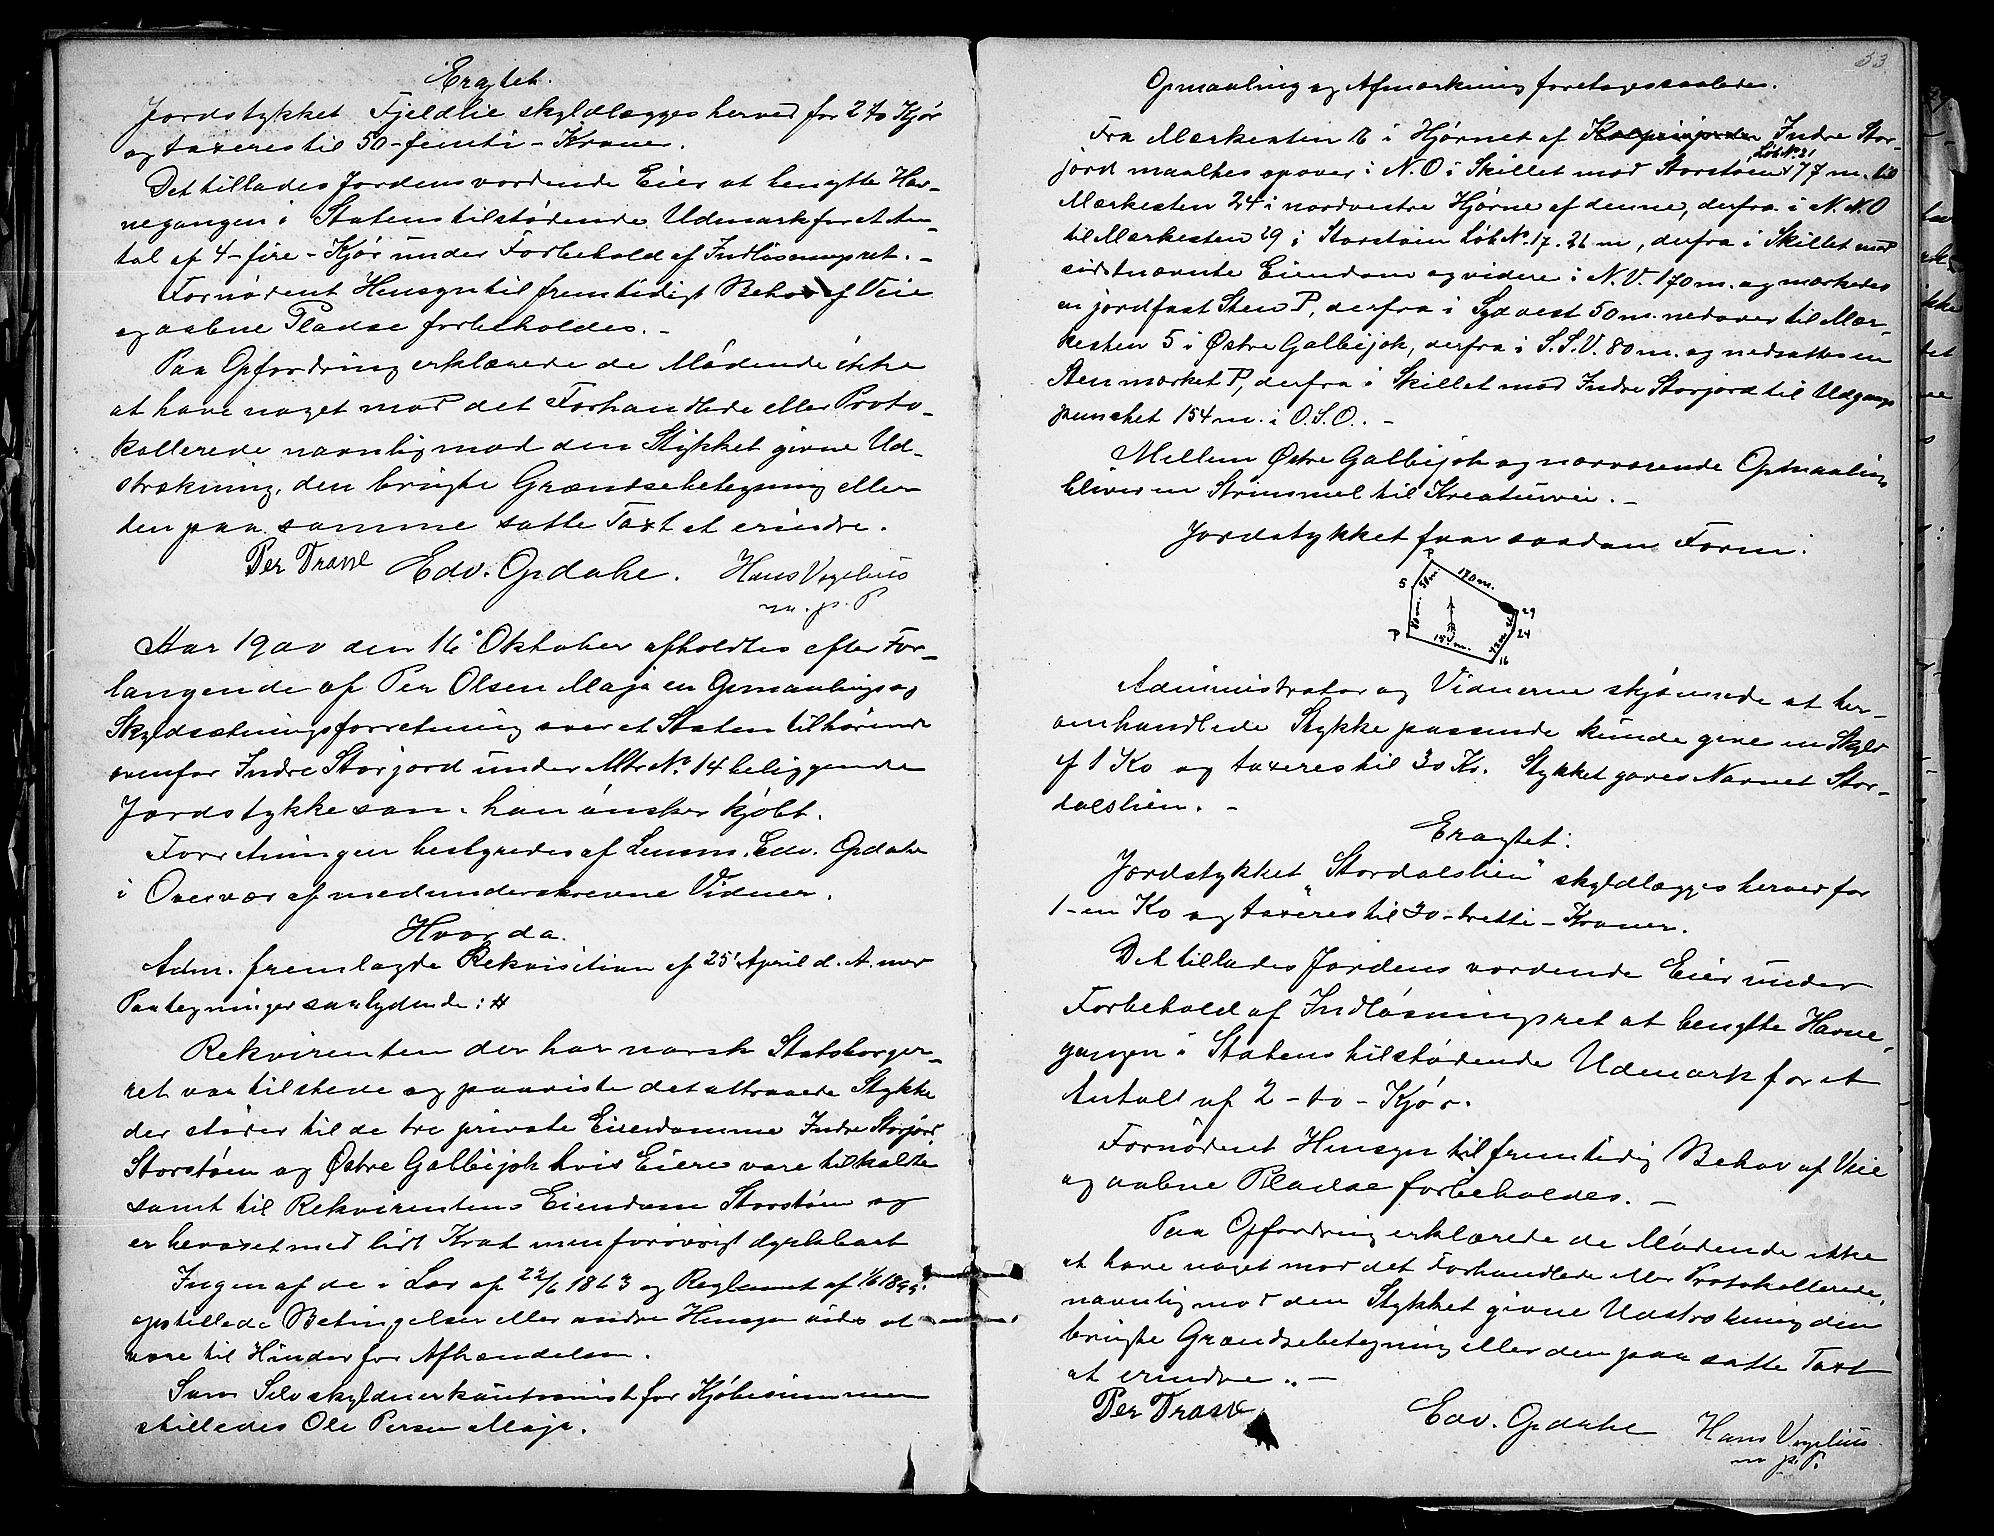 Eragtet.
Jordstykket Fjeldlie skyldlægges herved for 2 to Kjør
og taxeres til 50-femti-Kroner.
Det tillades Jordens vordende Eier at benytte Hav-
negangen i Statens tilstødende Udmark for et An-
tal af 4-fire-Kjør under Forbehold af Indløsningsret. -
Fornødent Hensyn til fremtidigt Behov af Veie
og aabne Pladse forbeholdes. -
Paa Opfordring erklærede de Mødende ikke
at have noget mod det Forhandlede eller Proto-
kollerede navnlig mod den Stykket givne Ud-
strækning, den brugte Grændsebetegning eller
den paa samme satte Taxt at erindre.
Per Trask Edv. Opdahl. Hans Vogelius
m. p. P
Aar 1900 den 16 Oktober afholdtes efter For-
langende af Per Olsen Maja en Opmaalings og
Skyldsætningsforretning over et Staten tilhørende
ovenfor Indre Storjord under Mtr No. 14 beliggende
Jordstykke som han ønsker kjøbt.
Forretningen bestyredes af Lensm. Edv. Opdahl
i Overvær af medunderskrevne Vidner.
Hvorda.
Adm. fremlagde Rekvisition af 25 April d. A. med
Paategninger saalydende: #
Rekvirenten der har norsk Statsborger-
ret var tilstede og paaviste det attraaede Stykke
der støder til de tre private Eiendomme Indre Storjord
Storstøen og Østre Galbijok hvis Eiere vare tilkaldte
samt til Rekvirentens Eiendom Storstøen og
er bevoxet med lidt Krat men forøvrigt dyrkbart
Ingen af de i Lov af 22/6 1863 og Reglement af 1/6 1895
opstillede Betingelser eller andre Hensyn vides at
være til Hinder for Afhændelsen.
Som Selvskyldnerkautionist for Kjøbesummen
stilledes Ole Persen Maja.
53
Opmaaling og Afmærkning foretages saaledes.
Fra Mærkesten 16 i Hjørnet af Indre Stor-
Løb No 21
jord maaltes opover i N.O i Skillet mod Storstøen 77 m. til
Mærkesten 24 i nordvestre Hjørne af denne, derfra i N.N.O
til Mærkesten 29 i Storstøen Løb No. 17. 26 m, derfra i Skillet med
sidstnævnte Eiendom og videre i N.V. 170 m. og mærkedes
en jordfast Sten P, derfra i Sydvest 50 m. nedover til Mær-
kesten 5 i Østre Galbijok, derfra i S.S.V. 80 m. og nedsattes en
Sten mærket P, derfra i Skillet mod Indre Storjord til Udgangs
punktet 154 m. i O.S.O. -
Mellem Østre Galbijok og nærværende Opmaaling
bliver en Strimmel til Kreaturvei. -
Jordstykket faar saadan Form:
P
170 m.
5
50 m.
29
26
80 m.
24
P
154 m.
77 m
16
Administrator og Vidnerne skjønnede at her-
omhandlede Stykke passende kunde give en Skyld
af 1 Ko og taxeres til 30 Kr. Stykket gaves Navnet Stor-
dalslien. -
Eragtet:
Jordstykket "Stordalslien" skyldlægges herved for
1-en Ko og taxeres til 30-tretti-Kroner.
Det tillades Jordens vordende Eier under
Forbehold af Indløsningsret at benytte Havne-
gangen i Statens tilstødende Udmark for et
Antall af 2-to-Kjør.
Fornødent Hensyn til fremtidig Behov af Veie
og aabne Pladse forbeholdes. -
Paa Opfordring erklærede de Mødende ikke
at have noget mod det Forhandlede eller Protokollerede,
navnlig mod den Stykket givne Udstrækning den
brugte Grændsebetegning eller den paa satte Taxt
at erindre. -
Per Trask Edv. Opdahl Hans Vogelius
m. p. P.